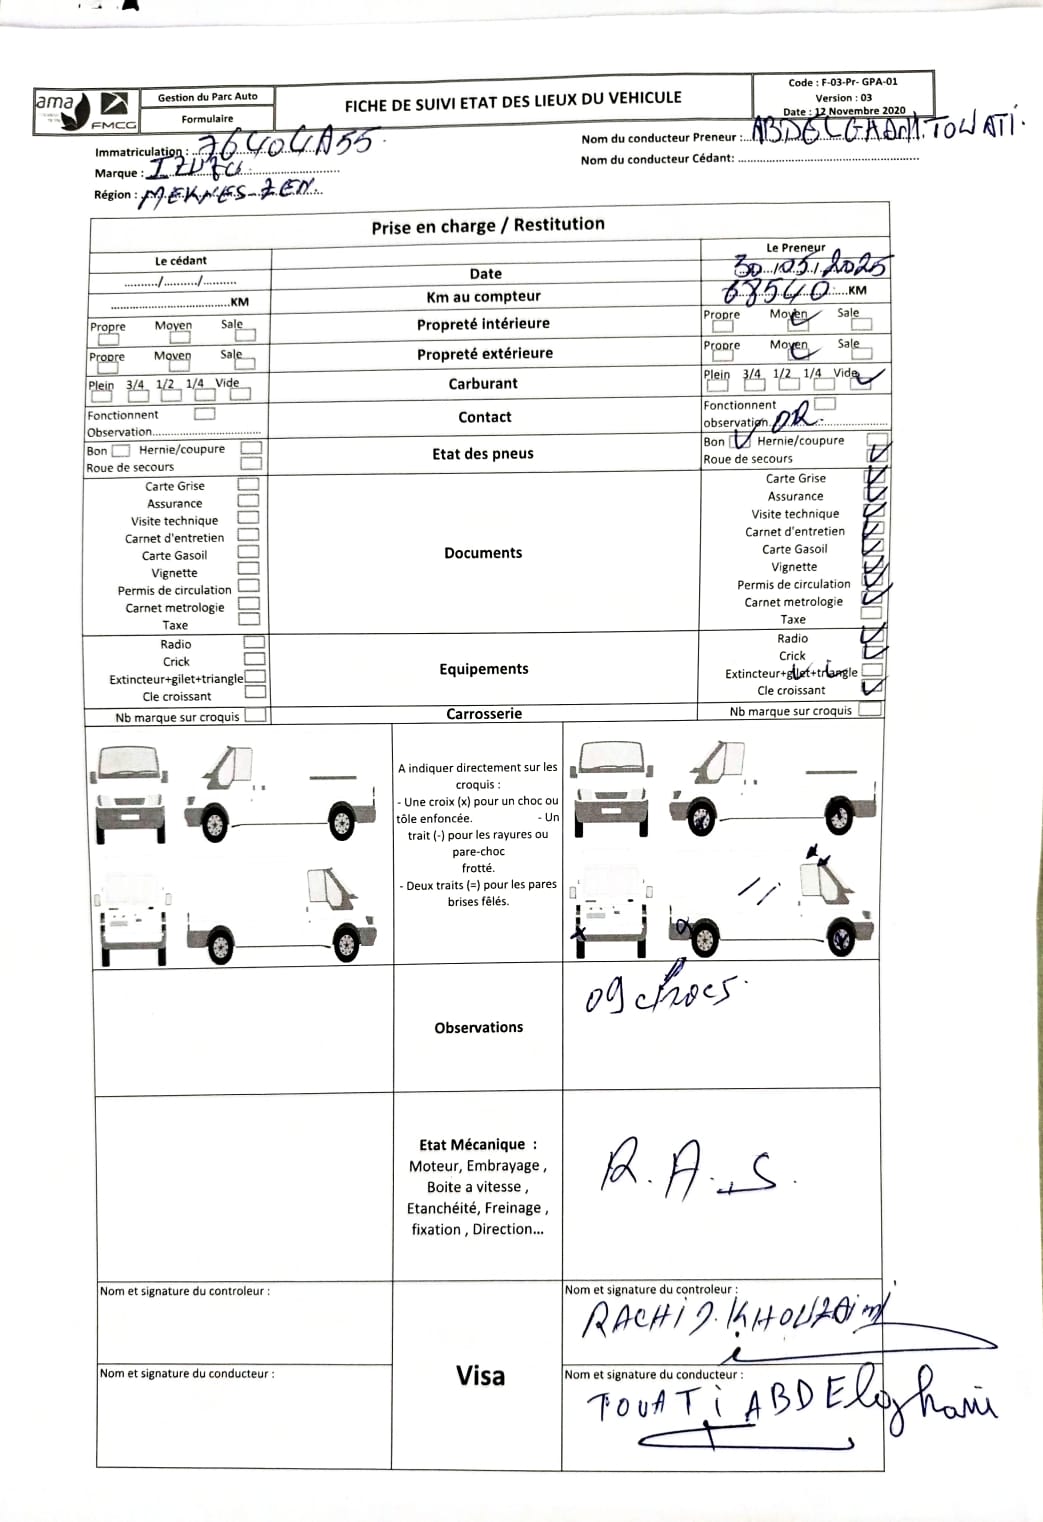 ama
FMCG
Gestion du Parc Auto
Formulaire
FICHE DE SUIVI ETAT DES LIEUX DU VEHICULE
Code : F-03-Pr- GPA-01
Version : 03
Date : 12 Novembre 2020
Immatriculation : 76404A55
Nom du conducteur Preneur : ABDELGHANI.TOUATI.
Marque : IZUZU
Nom du conducteur Cédant:
Région : MEKNES-ZEN
Prise en charge / Restitution
Le cédant
Le Preneur
....../....../......
Date
30/05/2025
KM
Km au compteur
68540 KM
Propre Moyen Sale
Propreté intérieure
Propre Moyen Sale
Propre Moyen Sale
Propreté extérieure
Propre Moyen Sale
Plein 3/4 1/2 1/4 Vide
Carburant
Plein 3/4 1/2 1/4 Vide
Fonctionnent
Observation
Contact
Fonctionnent
observation
Bon Hernie/coupure
Roue de secours
Etat des pneus
Bon Hernie/coupure
Roue de secours
Carte Grise
Assurance
Visite technique
Carnet d'entretien
Carte Gasoil
Vignette
Permis de circulation
Carnet metrologie
Taxe
Documents
Carte Grise
Assurance
Visite technique
Carnet d'entretien
Carte Gasoil
Vignette
Permis de circulation
Carnet metrologie
Taxe
Radio
Crick
Extincteur+gilet+triangle
Cle croissant
Equipements
Radio
Crick
Extincteur+gilet+triangle
Cle croissant
Nb marque sur croquis
Carrosserie
Nb marque sur croquis
A indiquer directement sur les
croquis :
- Une croix (x) pour un choc ou
tôle enfoncée. - Un
trait (-) pour les rayures ou
pare-choc
frotté.
- Deux traits (=) pour les pares
brises fêlés.
Observations
09 chocs.
Etat Mécanique :
Moteur, Embrayage ,
Boite a vitesse ,
Etanchéité, Freinage ,
fixation , Direction...
R.A.S.
Nom et signature du controleur :
Nom et signature du conducteur :
Visa
Nom et signature du controleur :
RACHID.KHOUZAIMI
Nom et signature du conducteur :
TOUATI ABDELghani